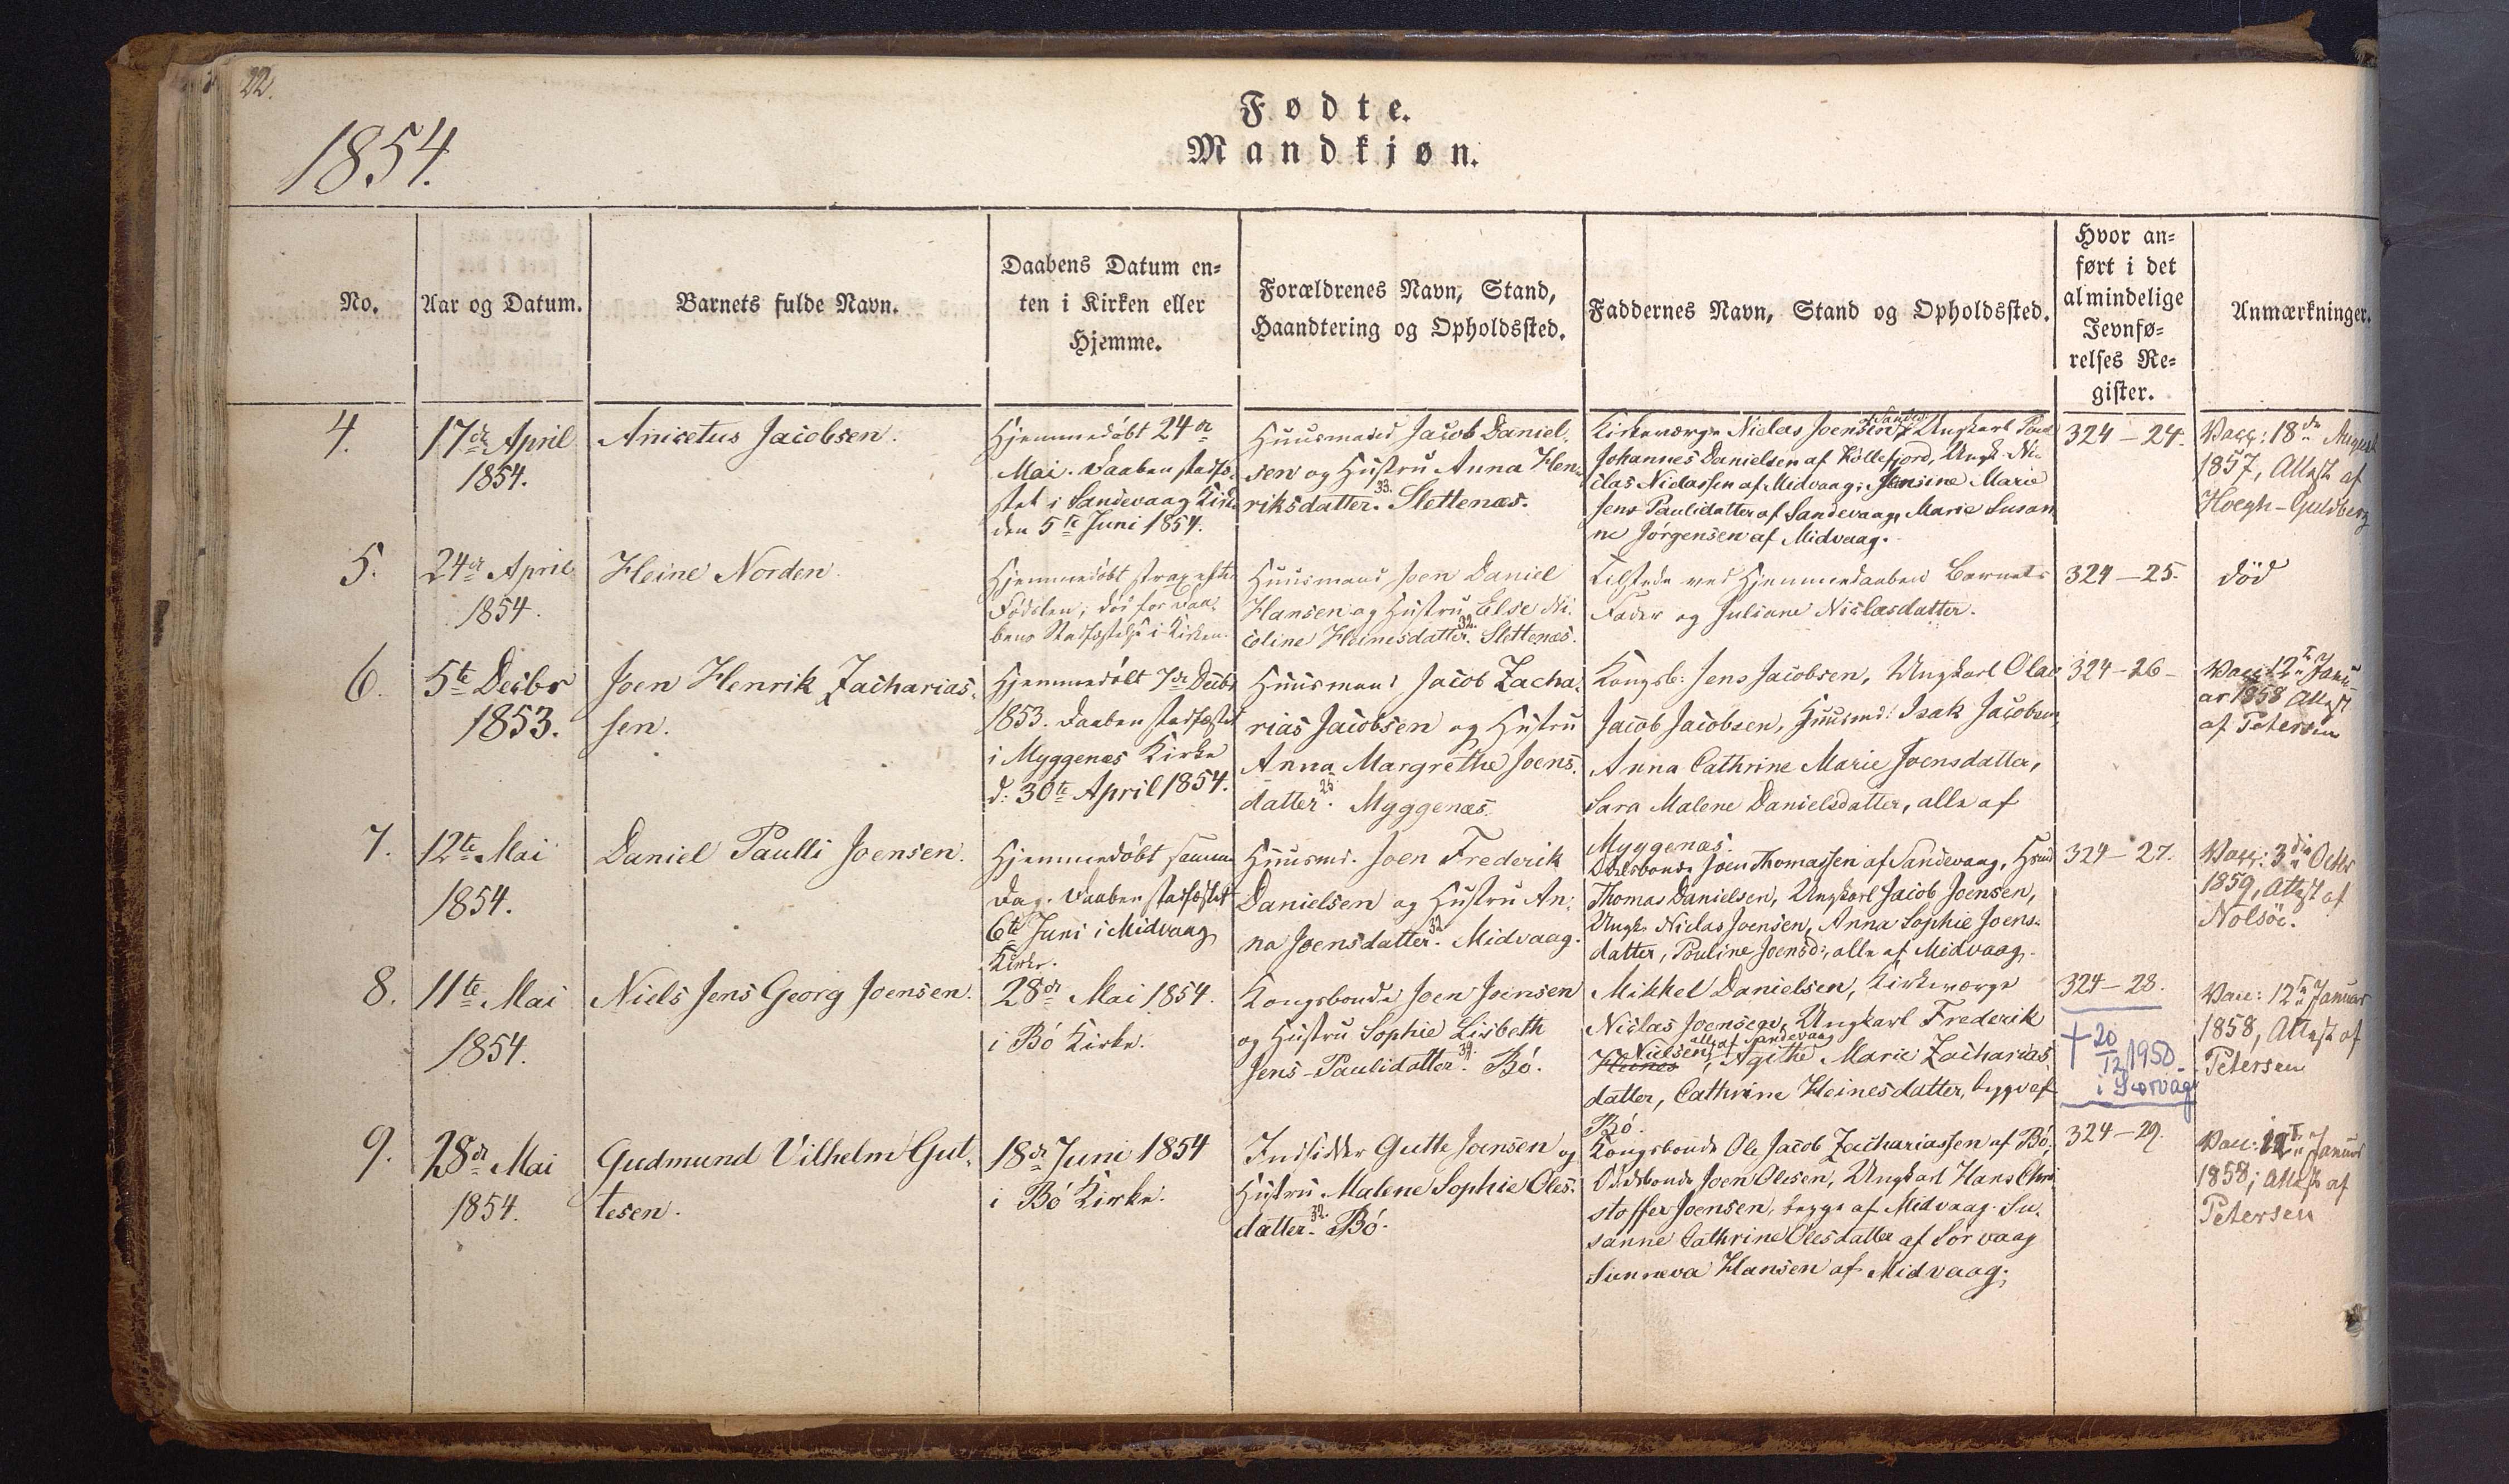 22.
1854.
Fødte.
Mandkjøn.
No.
Aar og Datum.
Barnets fulde Navn.
Daabens Datum en-
ten i Kirken eller
Hjemme.
Forældrenes Navn, Stand,
Haandtering og Opholdssted.
Faddernes Navn, Stand og Opholdssted.
Hvor an-
ført i det
almindelige
Jevnfø-
relses Re-
gister.
Anmærkninger.
4.
17de April
1854.
Anicetus Jacobsen.
Hjemmedøbt 24de
Mai. Daaben stadfæ-
stet i Sandevaag Kirke
den 5te Juni 1854.
Huusmand Jacob Daniel-
sen og Hustru Anna Hen-
riksdatter. 33. Slettenæs.
Kirkeværge Niclas Joensen af Sandev. Ungkarl Poul
Johannes Danielsen af Kollefjord, Ungk. Ni-
clas Niclassen af Midvaag, Jensine Marie
Jens-Paulidatter af Sandevaag, Marie Susan
ne Jørgensen af Midvaag.
324 - 24.
Vacc: 18de August
1857, Attest af
Hoegh-Guldberg
5.
24de April
1854.
Heine Norden
Hjemmedøbt strax efter
Fødslen, død før Daa-
bens Stadfæstelse i Kirken.
Huusmand Joen Daniel
Hansen og Hustru Else Ni-
coline Heinesdatter. 32. Slettenæs.
Tilstede ved Hjemmedaaben Barnets
Fader og Juliane Niclasdatter.
324 - 25.
død
6.
5te Decbr
1853.
Joen Henrik Zacharias-
sen.
Hjemmedøbt 7de Decbr
1853. Daaben stadfæstet
i Myggenæs Kirke
d: 30te April 1854.
Huusmand Jacob Zacha-
rias Jacobsen og Hustru
Anna Margrethe Joens-
datter. 25 Myggenæs.
Kongsb: Jens Jacobsen, Ungkarl Olav
Jacob Jacobsen, Huusmd: Isak Jacobsen
Anna Cathrine Marie Joensdatter,
Sara Malene Danielsdatter, alle af
Myggenæs.
324 - 26 -
Vacc 12te Janu
ar 1858 Attest
af Petersen
7.
12te Mai
1854.
Daniel Paulli Joensen.
Hjemmedøbt samme
Dag. Daaben stadfæstet
6te Juni i Midvaag
Kirke.
Huusmd. Joen Frederik
Danielsen og Hustru An-
na Joensdatter. 32 Midvaag.
Odelsbonde Joen Thomassen af Sandevaag, Huusmd
Thomas Danielsen, Ungkarl Jacob Joensen,
Ungk. Niclas Joensen, Anna Sophie Joens-
datter, Pouline Joensd:, alle af Midvaag.
324 - 27.
Vacc: 3die Octbr
1859, Attest af
Nolsöe.
8.
11te Mai
1854.
Niels Jens Georg Joensen.
28de Mai 1854.
i Bø Kirke.
Kongsbonde Joen Joensen
og Hustru Sophie Lisbeth
Jens-Paulidatter. 39. Bø.
Mikkel Danielsen, Kirkeværge
Niclas Joensen, Ungkarl Frederik
Heines Nielsen, alle af Sandevaag, Agathe Marie Zacharias-
datter, Cathrine Heinesdatter, begge af
Bø.
324 - 28.
† 20/12 1950
i Sørvág
Vacc: 12te Januar
1858, Attest af
Petersen
9.
28de Mai
1854.
Gudmund Vilhelm Gut-
tesen.
18de Juni 1854
i Bø Kirke.
Indsidder Gutte Joensen og
Hustru Malene Sophie Oles-
datter. 32. Bø.
Kongsbonde Ole Jacob Zachariassen af Bø,
Odelsbonde Joen Olesen, Ungkarl Hans Chri
stoffer Joensen, begge af Midvaag. Su-
sanne Cathrine Olesdatter af Sørvaag
Sunneva Hansen af Midvaag.
324 - 29.
Vacc: 12te Januar
1858; Attest af
Petersen